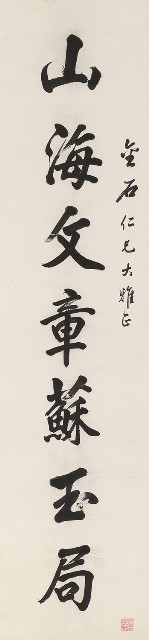 金石仁兄大雅正
山海文章蘇玉局